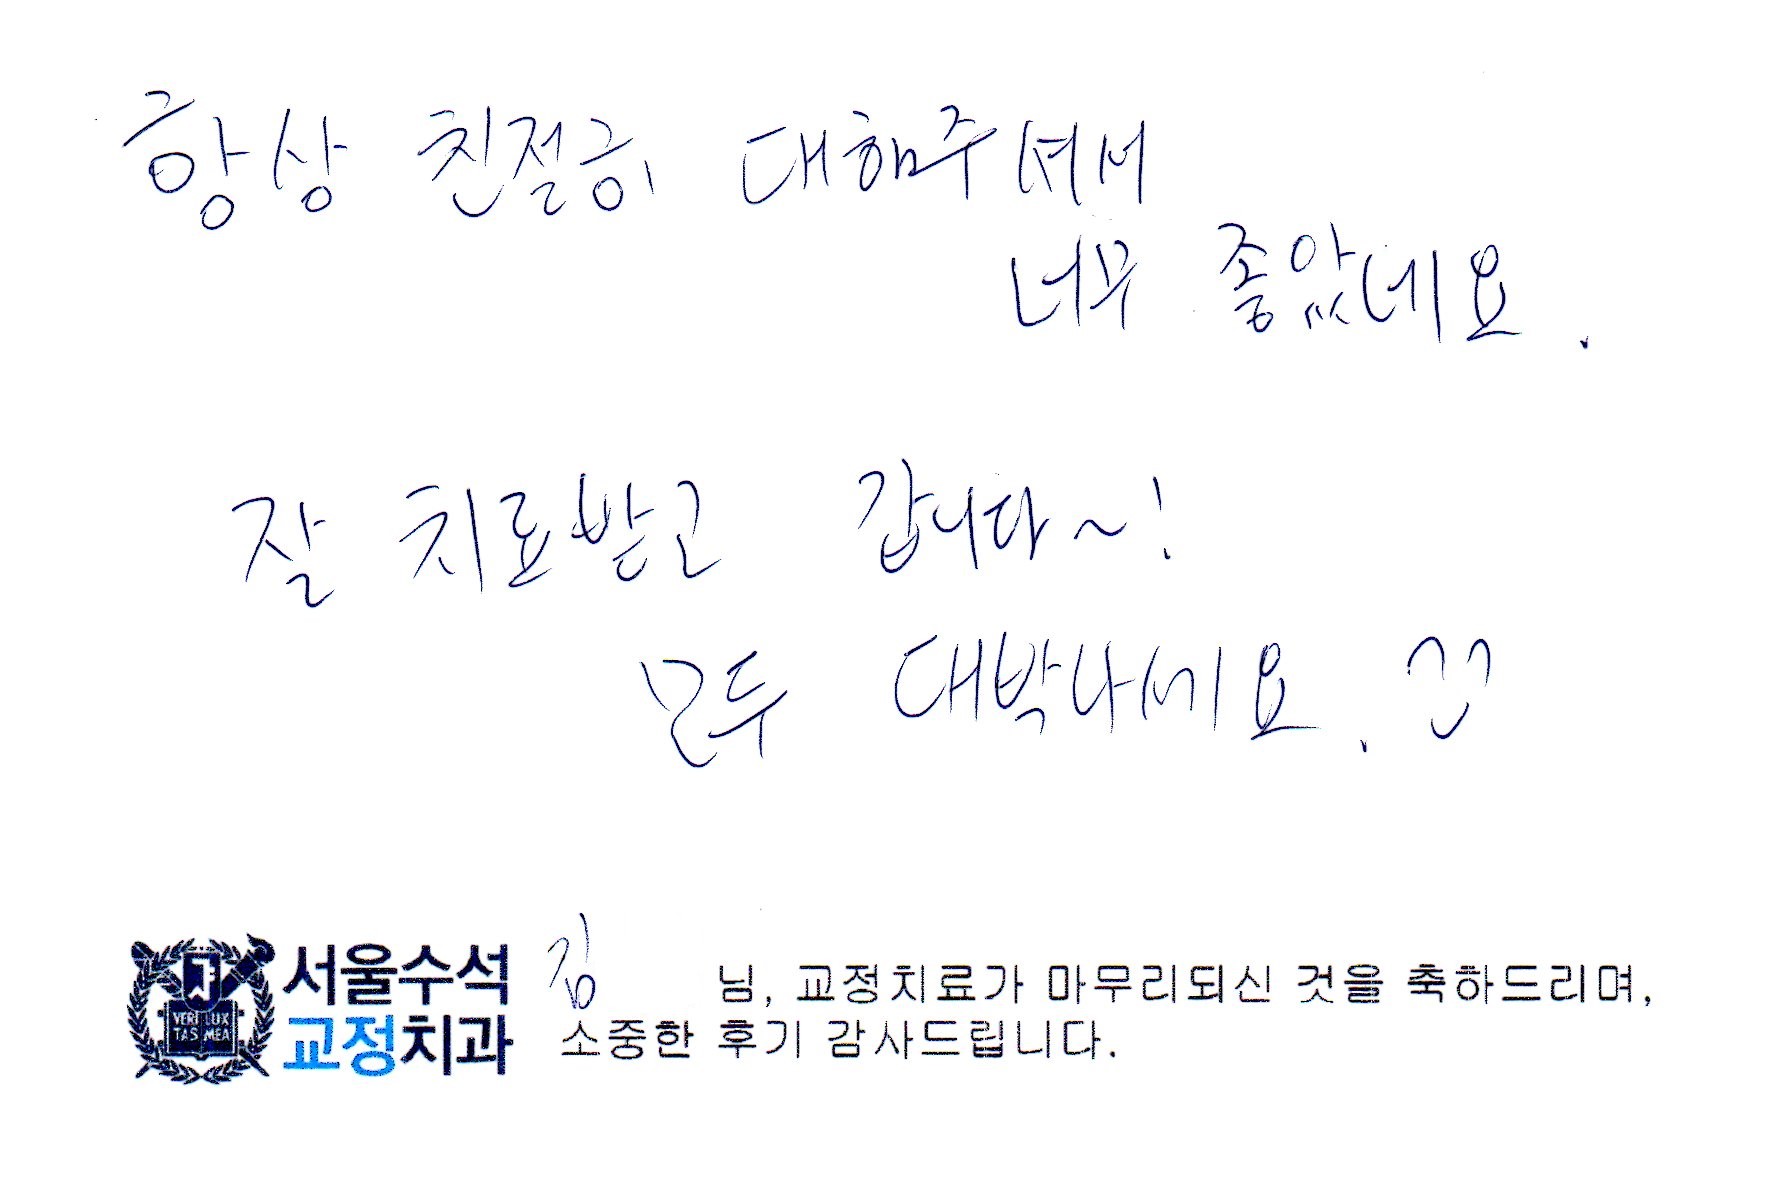 항상 친절히 대해주셔서
너무 좋았네요.
잘 치료받고 갑니다~!
모두 대박나세요.
서울수석
교정치과
VERI LUX
TAS MEA
김 님, 교정치료가 마무리되신 것을 축하드리며,
소중한 후기 감사드립니다.